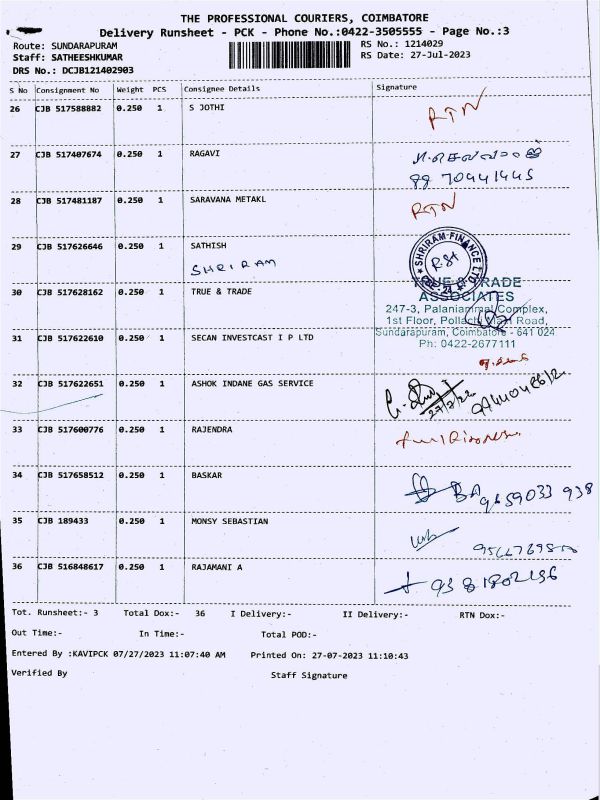 THE PROFESSIONAL COURIERS, COIMBATORE
Delivery Runsheet - PCK - Phone No.:0422-3505555 - Page No.:3
Route: SUNDARAPURAM RS No.: 1214029
Staff: SATHEESHKUMAR RS Date: 27-Jul-2023
DRS No.: DCJB121402903
S No Consignment No Weight PCS Consignee Details Signature
26 CJB 517588882 0.250 1 S JOTHI RTN
27 CJB 517407674 0.250 1 RAGAVI
88 70441445
28 CJB 517481187 0.250 1 SARAVANA METAKL RTN
29 CJB 517626646 0.250 1 SATHISH
SHRIRAM
SHRIRAM FINANCE LTD
30 CJB 517628162 0.250 1 TRUE & TRADE
TRUE & TRADE
ASSOCIATES
247-3, Palaniammal Complex,
1st Floor, Pollachi Main Road,
Sundarapuram, Coimbatore - 641 024
Ph: 0422-2677111
31 CJB 517622610 0.250 1 SECAN INVESTCAST I P LTD
32 CJB 517622651 0.250 1 ASHOK INDANE GAS SERVICE
33 CJB 517600776 0.250 1 RAJENDRA
34 CJB 517658512 0.250 1 BASKAR BA 9659033 938
35 CJB 189433 0.250 1 MONSY SEBASTIAN
36 CJB 516848617 0.250 1 RAJAMANI A
Tot. Runsheet:- 3 Total Dox:- 36 I Delivery:- II Delivery:- RTN Dox:-
Out Time:- In Time:- Total POD:-
Entered By :KAVIPCK 07/27/2023 11:07:40 AM Printed On: 27-07-2023 11:10:43
Verified By Staff Signature